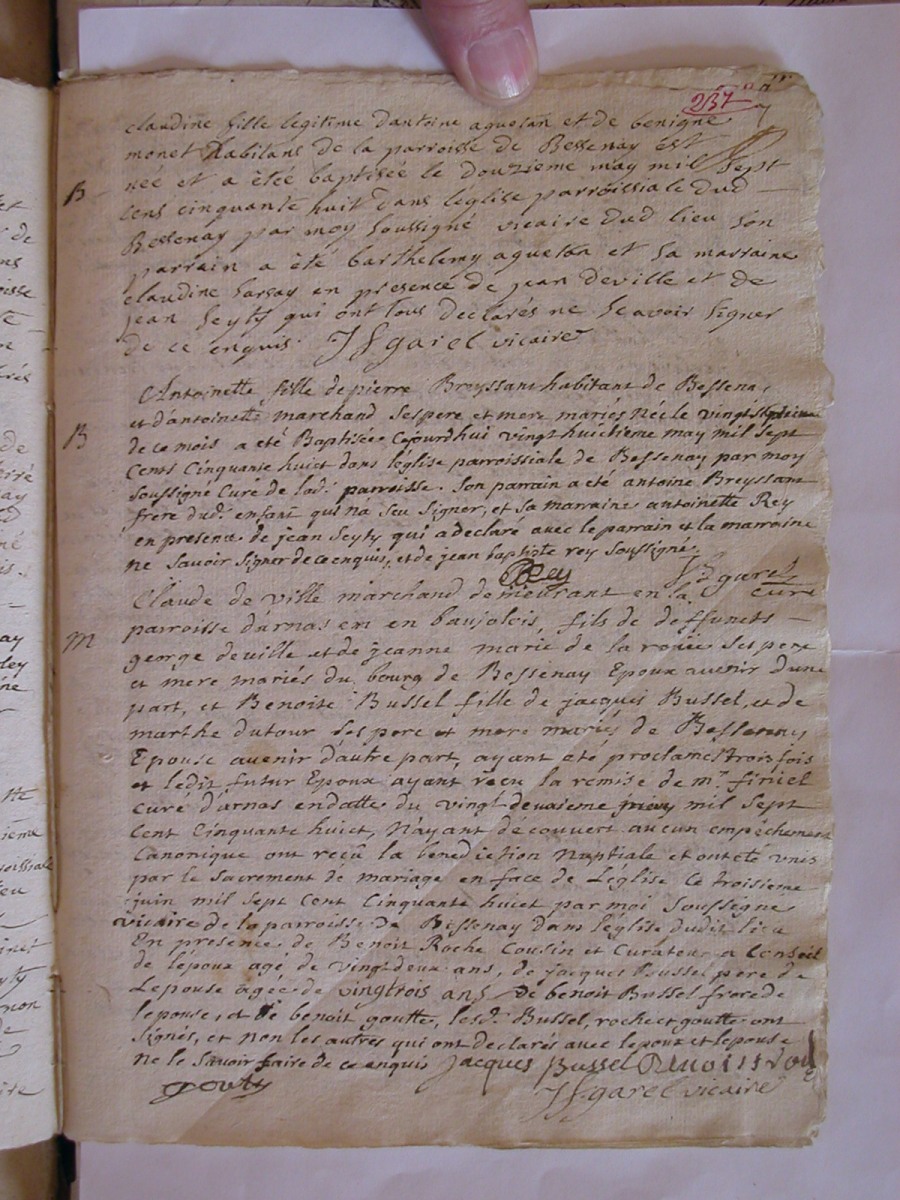 237
claudine fille legitime dantoine aguetan et de benigne
monet habitans de la parroisse de Bessenay est
B née et a étée baptisée le douzieme may mil sept
cens cinquante huit dans léglise parroissiale dud
Bessenay par moy soussigné vicaire dud lieu son
parrain a été barthelemy aguetan et sa marraine
claudine sarsay en presence de jean deville et de
jean seyty qui ont tous declarés ne scavoir signer
de ce enquis. JFgarel vicaire
Antoinette fille de pierre Breyssant habitant de Bessena
et d'antoinette marchand ses pere et mere mariés Née le vingt septieme
B de ce mois a eté Baptisée Cejourdhui vingt huictieme may mil sept
Cents Cinquante huict dans léglise parroissiale de Bessenay par moy
soussigné Curé de lad. parroisse. Son parrain a été antoine Breyssant
frere dud. enfant qui na sçu signer, et sa marraine antoinette Rey
en presence de jean Seyty qui a declaré avec le parrain et la marraine
ne savoir signer de ce enquis, et de jean baptiste rey soussigné.
Rey garel curé
Claude de ville marchand demeurant en la
parroisse darnas en baujolois, fils de deffuncts
M george deville et de jeanne marie de la roüée ses pere
et mere mariés du bourg de Bessenay Epoux avenir dune
part, et Benoite Bussel fille de jacques Bussel, et de
marthe dutour ses pere et mere mariés de Bessenay
Epouse avenir dautre part, ayant eté proclamés trois fois
et ledit futur Epoux ayant reçu la remise de mr. firiel
curé darnas en datte du vingt deuxieme mil sept
Cent Cinquante huict, N'ayant découvert aucun empechement
Canonique ont reçû la benediction Nuptiale et ont eté unis
par le sacrement de mariage en face de Léglise Ce troisieme
juin mil sept Cent Cinquante huict par moi soussigné
vicaire de la parroisse de Bessenay dans léglise dudit lieu
En presence de Benoit Roche Cousin et Curateur a Conseil
de lépoux agé de vingt deux ans, de jacques Bussel pere de
Lépouse agée de vingtrois ans de benoit Bussel frere de
lepouse, et de benoit goutte, lesd. Bussel, roche et goutte ont
signés, et non les autres qui ont declarés avec lepoux et lepouse
ne le savoir faire de ce enquis jacques Bussel
JFgarel vicaire